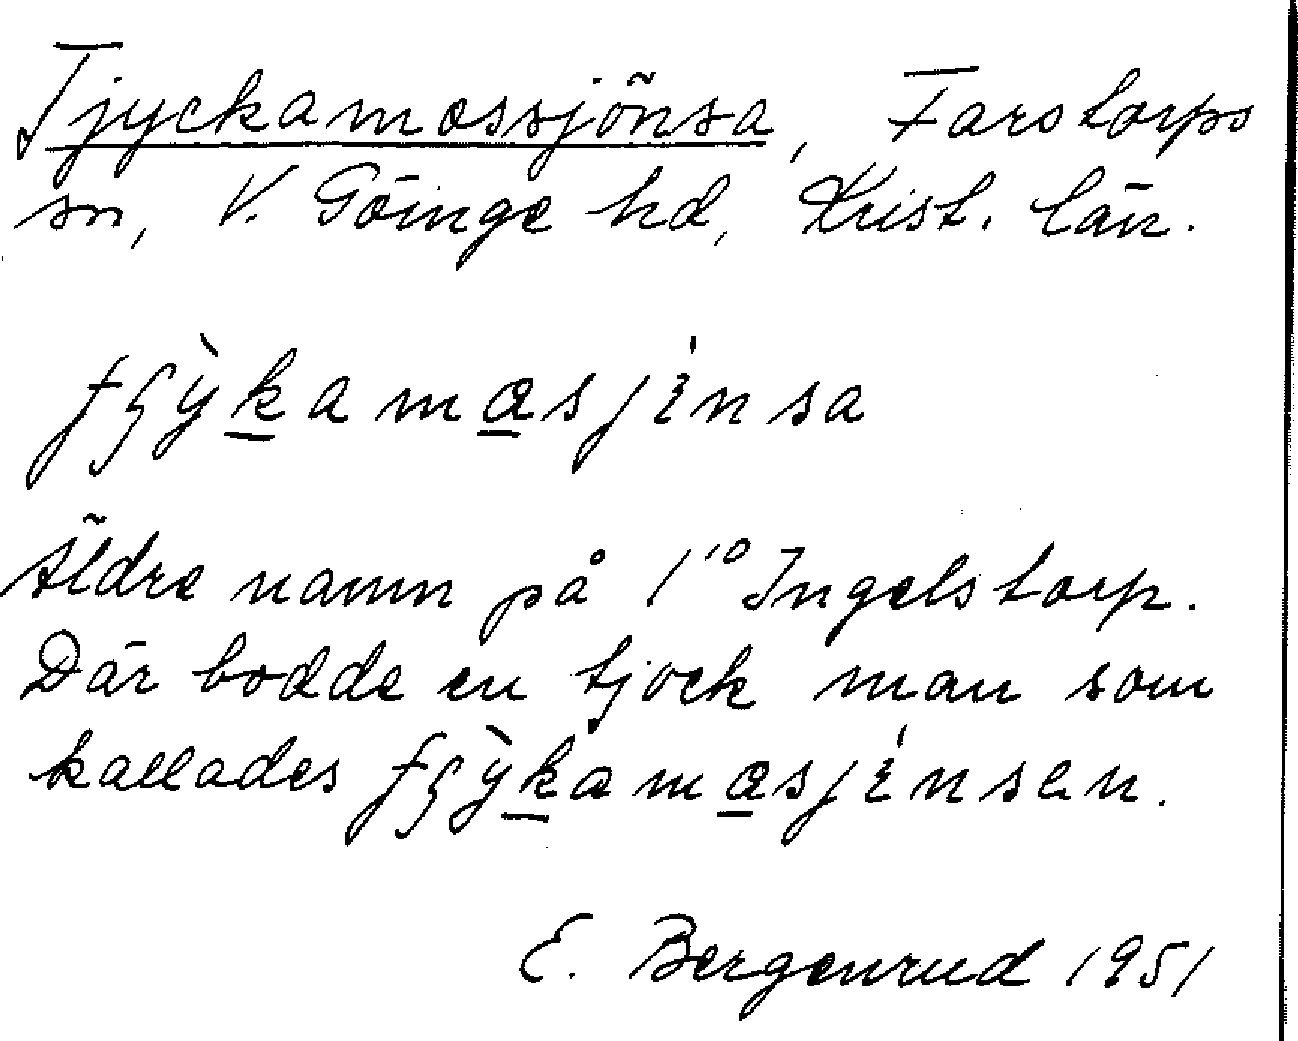 Tjyckamossjönsa, Farstorps
sn, V. Göinge hd, Krist. län.
Äldre namn på 1¹⁰ Ingelstorp.
Där bodde en tjock man som
kallades
E. Bergenrud 1951